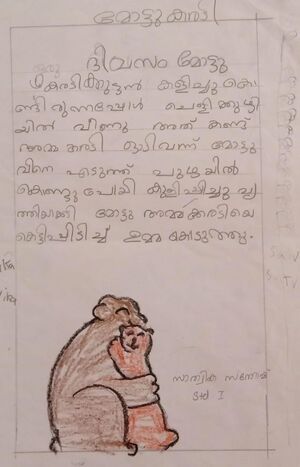 മോട്ടു കരടി
ഒരു
ദിവസം മോട്ടു
കരടിക്കുട്ടൻ കളിച്ചു കൊ
ണ്ടിരുന്നപ്പോൾ ചെളിക്കുഴി
യിൽ വീണു അത് കണ്ട്
അമ്മ കരടി ഓടിവന്ന് മോട്ടു
വിനെ എടുത്ത് പുഴയിൽ
കൊണ്ടുപോയി കുളിപ്പിച്ചു വൃ
ത്തിയാക്കി മോട്ടു അമ്മക്കരടിയെ
കെട്ടിപ്പിടിച്ച് ഉമ്മ കൊടുത്തു.
സാത്വിക സന്തോഷ്
Std I